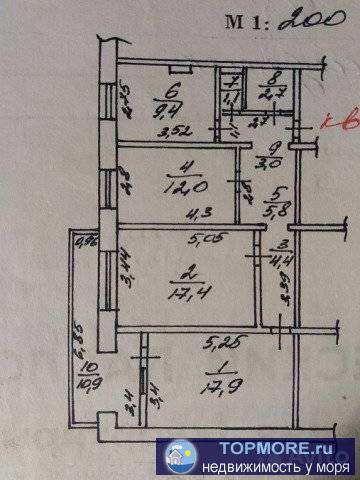 М 1: 200
6
9,4
2,75
3,52
7
1,1
8
2,7
2,7
кв
9
3,0
4
12,0
2,8
4,3
2,5
5
5,8
5,05
0,96
3,44
2
17,4
3
4,4
3,39
6,85
10
10,9
2,4
3,4
5,25
1
17,9
TOPMORE.ru
недвижимость у моря